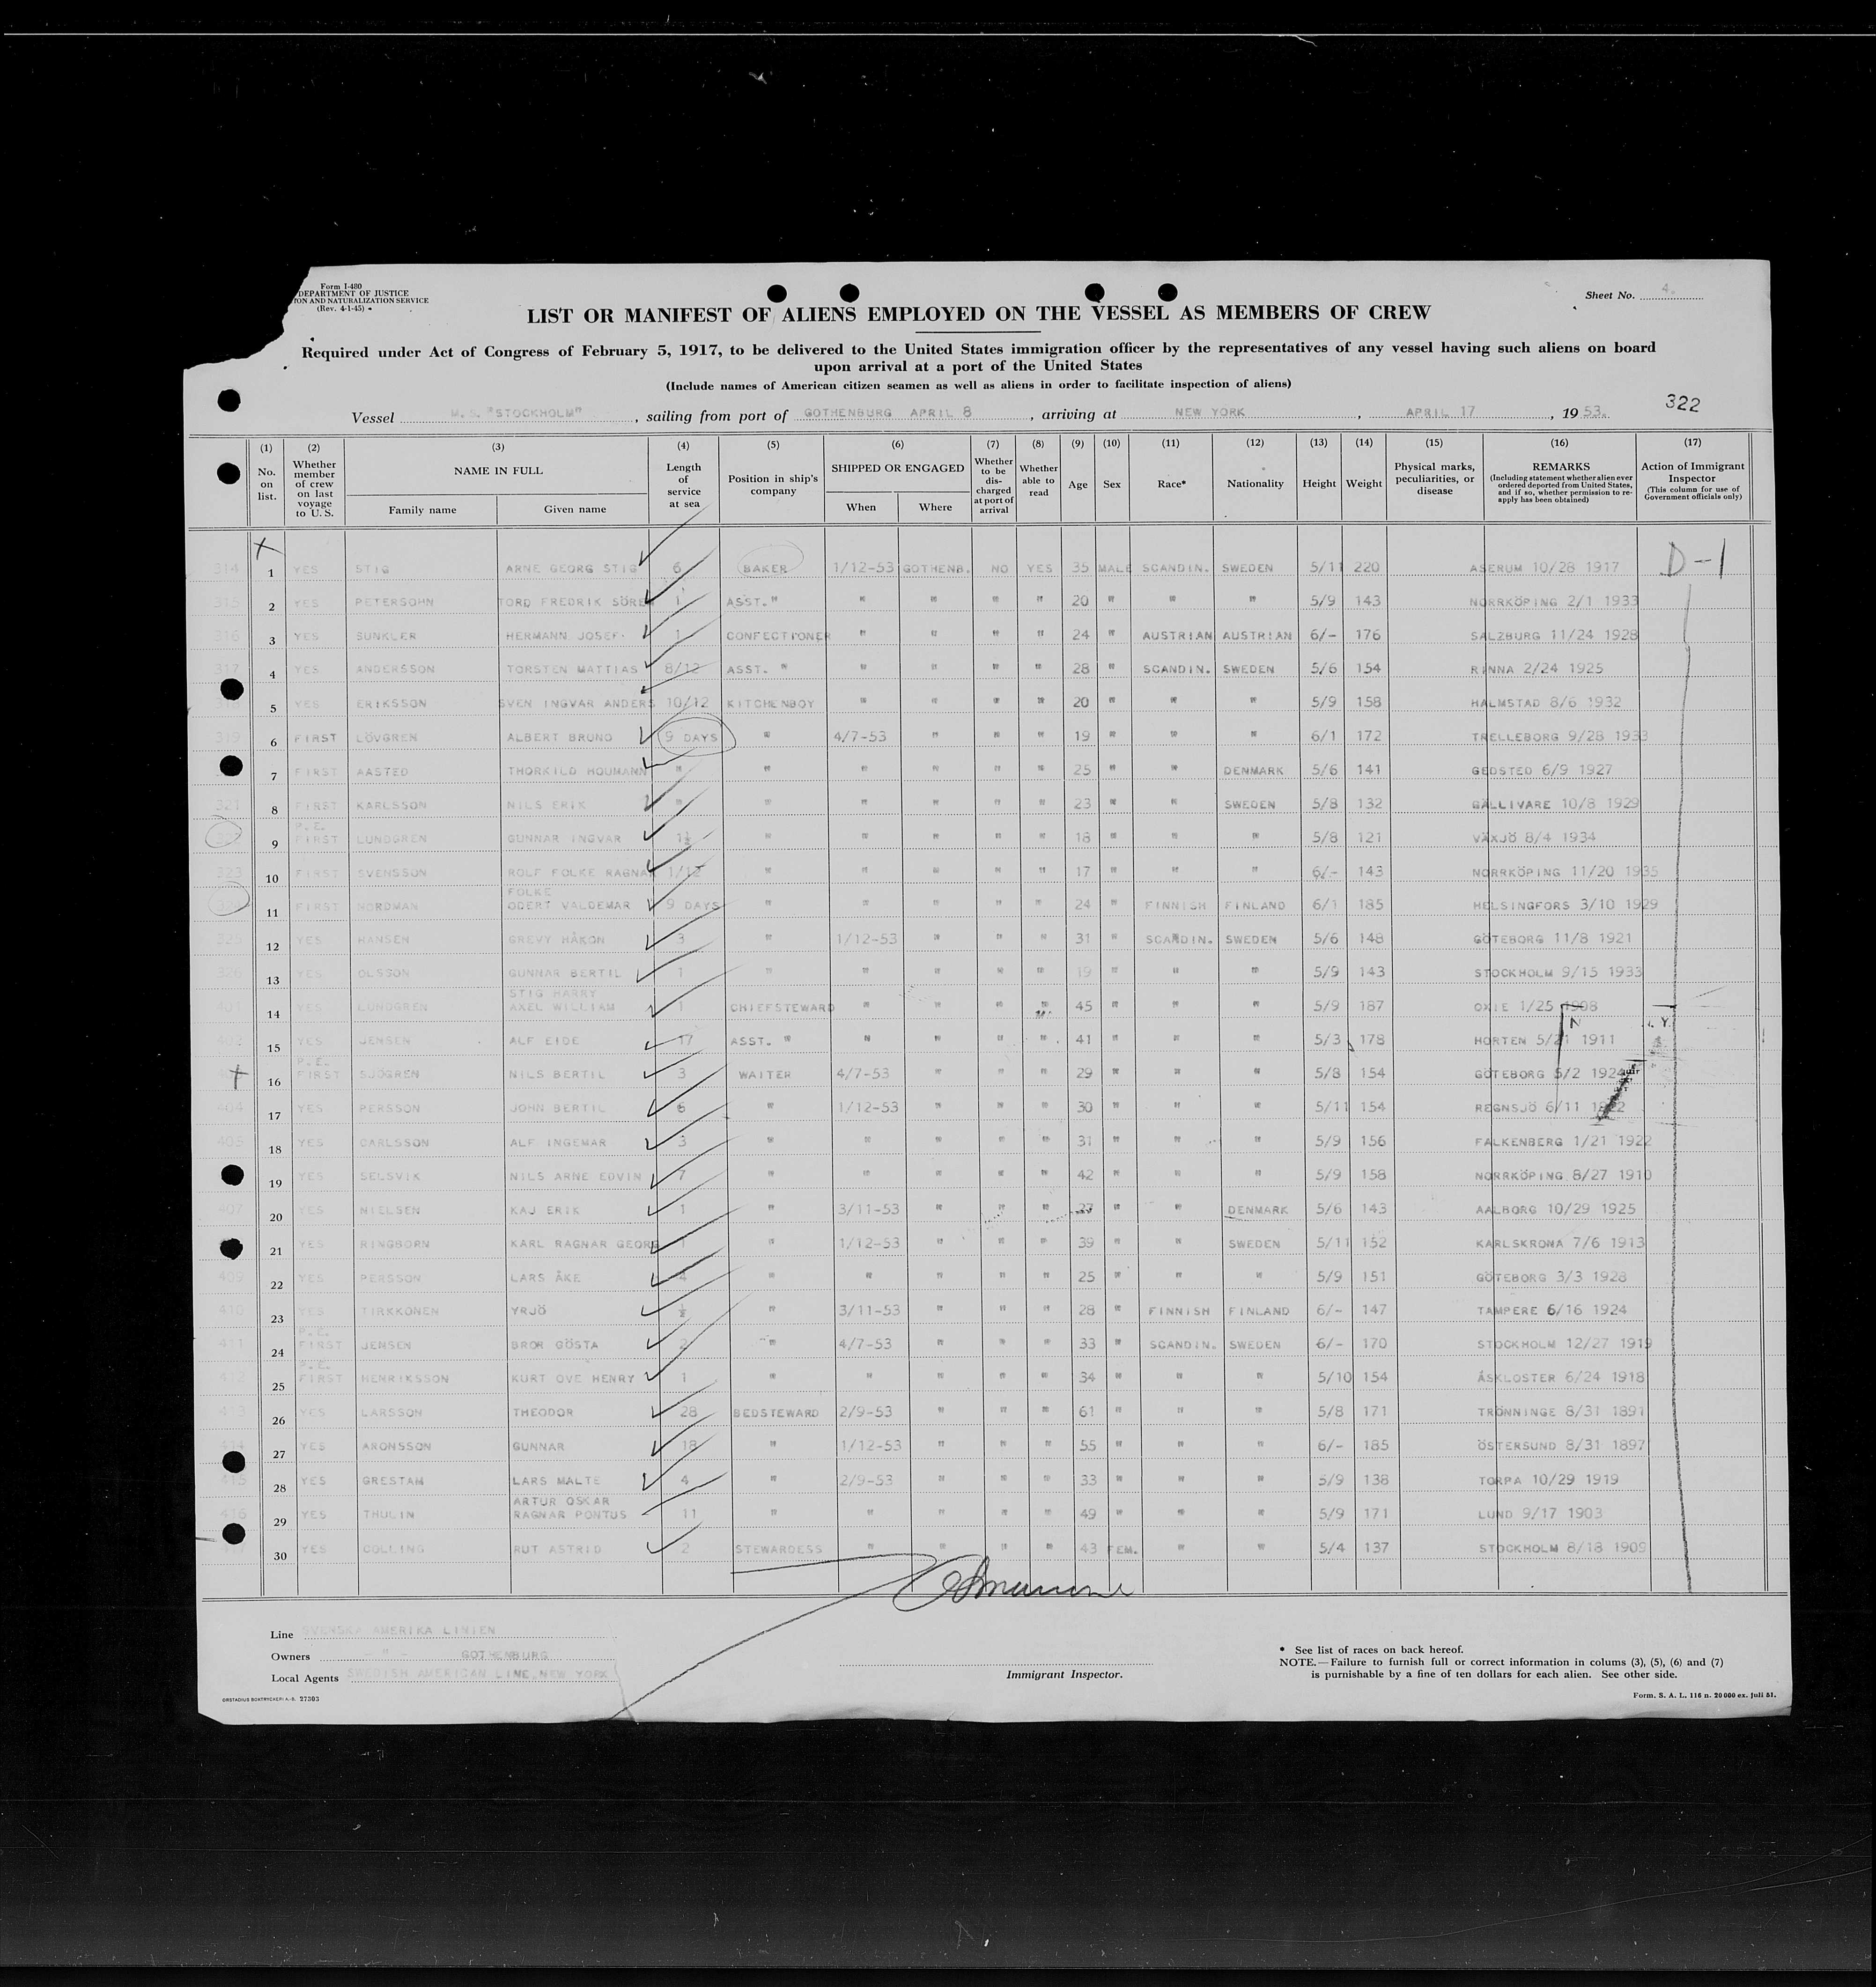 Form I-480
DEPARTMENT OF JUSTICE
ION AND NATURALIZATION SERVICE
(Rev. 4-1-45)
Sheet No. 4.
LIST OR MANIFEST OF ALIENS EMPLOYED ON THE VESSEL AS MEMBERS OF CREW
Required under Act of Congress of February 5, 1917, to be delivered to the United States immigration officer by the representatives of any vessel having such aliens on board
upon arrival at a port of the United States
(Include names of American citizen seamen as well as aliens in order to facilitate inspection of aliens)
Vessel M.S. "STOCKHOLM", sailing from port of GOTHENBURG APRIL 8, arriving at NEW YORK, APRIL 17, 1953. 322
(1) No. on list. (2) Whether member of crew on last voyage to U. S. (3) NAME IN FULL Family name Given name (4) Length of service at sea (5) Position in ship's company (6) SHIPPED OR ENGAGED When Where (7) Whether to be discharged at port of arrival (8) Whether able to read (9) Age (10) Sex (11) Race* (12) Nationality (13) Height (14) Weight (15) Physical marks, peculiarities, or disease (16) REMARKS (Including statement whether alien ever ordered deported from United States, and if so, whether permission to re-apply has been obtained) (17) Action of Immigrant Inspector (This column for use of Government officials only)
314 1 YES STIG ARNE GEORG STIG 6 BAKER 1/12-53 GOTHENB. NO YES 35 MALE SCANDIN. SWEDEN 5/11 220 ASERUM 10/28 1917 D-1
315 2 YES PETERSOHN TORD FREDRIK SÖREN 1 ASST. " " " " " 20 " " " 5/9 143 NORRKÖPING 2/1 1933
316 3 YES SUNKLER HERMANN JOSEF 1 CONFECTIONER " " " " 24 " AUSTRIAN AUSTRIAN 6/- 176 SALZBURG 11/24 1928
317 4 YES ANDERSSON TORSTEN MATTIAS 8/12 ASST. " " " " " 28 " SCANDIN. SWEDEN 5/6 154 RINNA 2/24 1925
318 5 YES ERIKSSON SVEN INGVAR ANDERS 10/12 KITCHENBOY " " " " 20 " " " 5/9 158 HALMSTAD 8/6 1932
319 6 FIRST LÖVGREN ALBERT BRUNO 9 DAYS " 4/7-53 " " " 19 " " " 6/1 172 TRELLEBORG 9/28 1933
7 FIRST AASTED THORKILD HOUMANN " " " " " " 25 " " DENMARK 5/6 141 GEDSTED 6/9 1927
321 8 FIRST KARLSSON NILS ERIK " " " " " " 23 " " SWEDEN 5/8 132 GÄLLIVARE 10/8 1929
322 9 P.E. FIRST LUNDGREN GUNNAR INGVAR 1½ " " " " " 18 " " " 5/8 121 VÄXJÖ 8/4 1934
323 10 FIRST SVENSSON ROLF FOLKE RAGNAR 1/12 " " " " " 17 " " " 6/- 143 NORRKÖPING 11/20 1935
324 11 FIRST NORDMAN FOLKE ODERT VALDEMAR 9 DAYS " " " " " 24 " FINNISH FINLAND 6/1 185 HELSINGFORS 3/10 1929
325 12 YES HANSEN GREVY HÅKON 3 " 1/12-53 " " " 31 " SCANDIN. SWEDEN 5/6 148 GÖTEBORG 11/8 1921
326 13 YES OLSSON GUNNAR BERTIL 1 " " " " " 19 " " " 5/9 143 STOCKHOLM 9/15 1933
401 14 YES LUNDGREN STIG HARRY AXEL WILLIAM 1 CHIEFSTEWARD " " " " 45 " " " 5/9 187 OXIE 1/25 1908
402 15 YES JENSEN ALF EIDE 17 ASST. " " " " " 41 " " " 5/3 178 HORTEN 5/21 1911 N. Y.
16 P.E. FIRST SJÖGREN NILS BERTIL 3 WAITER 4/7-53 " " " 29 " " " 5/8 154 GÖTEBORG 5/2 1924
404 17 YES PERSSON JOHN BERTIL 6 " 1/12-53 " " " 30 " " " 5/11 154 REGNSJÖ 6/11 1922
405 18 YES CARLSSON ALF INGEMAR 3 " " " " " 31 " " " 5/9 156 FALKENBERG 1/21 1922
19 YES SELSVIK NILS ARNE EDVIN 7 " " " " " 42 " " " 5/9 158 NORRKÖPING 8/27 1910
407 20 YES NIELSEN KAJ ERIK 1 " 3/11-53 " " " 27 " " DENMARK 5/6 143 AALBORG 10/29 1925
21 YES RINGBORN KARL RAGNAR GEORG 1 " 1/12-53 " " " 39 " " SWEDEN 5/11 152 KARLSKRONA 7/6 1913
409 22 YES PERSSON LARS ÅKE 4 " " " " " 25 " " " 5/9 151 GÖTEBORG 3/3 1928
410 23 YES TIRKKONEN YRJÖ ½ " 3/11-53 " " " 28 " FINNISH FINLAND 6/- 147 TAMPERE 6/16 1924
411 24 P.E. FIRST JENSEN BROR GÖSTA 2 " 4/7-53 " " " 33 " SCANDIN. SWEDEN 6/- 170 STOCKHOLM 12/27 1919
412 25 P.E. FIRST HENRIKSSON KURT OVE HENRY 1 " " " " " 34 " " " 5/10 154 ÅSKLOSTER 6/24 1918
413 26 YES LARSSON THEODOR 28 BEDSTEWARD 2/9-53 " " " 61 " " " 5/8 171 TRÖNNINGE 8/31 1891
414 27 YES ARONSSON GUNNAR 18 " 1/12-53 " " " 55 " " " 6/- 185 ÖSTERSUND 8/31 1897
415 28 YES GRESTAM LARS MALTE 4 " 2/9-53 " " " 33 " " " 5/9 138 TORPA 10/29 1919
416 29 YES THULIN ARTUR OSKAR RAGNAR PONTUS 11 " " " " " 49 " " " 5/9 171 LUND 9/17 1903
30 YES COLLING RUT ASTRID 2 STEWARDESS " " " " 43 FEM. " " 5/4 137 STOCKHOLM 8/18 1909
Line SVENSKA AMERIKA LINIEN
Owners - " - GOTHENBURG
Local Agents SWEDISH AMERICAN LINE, NEW YORK
Immigrant Inspector.
* See list of races on back hereof.
NOTE.—Failure to furnish full or correct information in colums (3), (5), (6) and (7)
is punishable by a fine of ten dollars for each alien. See other side.
ORSTADIUS BOKTRYCKERI A.-B. 27303
Form. S. A. L. 116 n. 20 000 ex. juli 51.